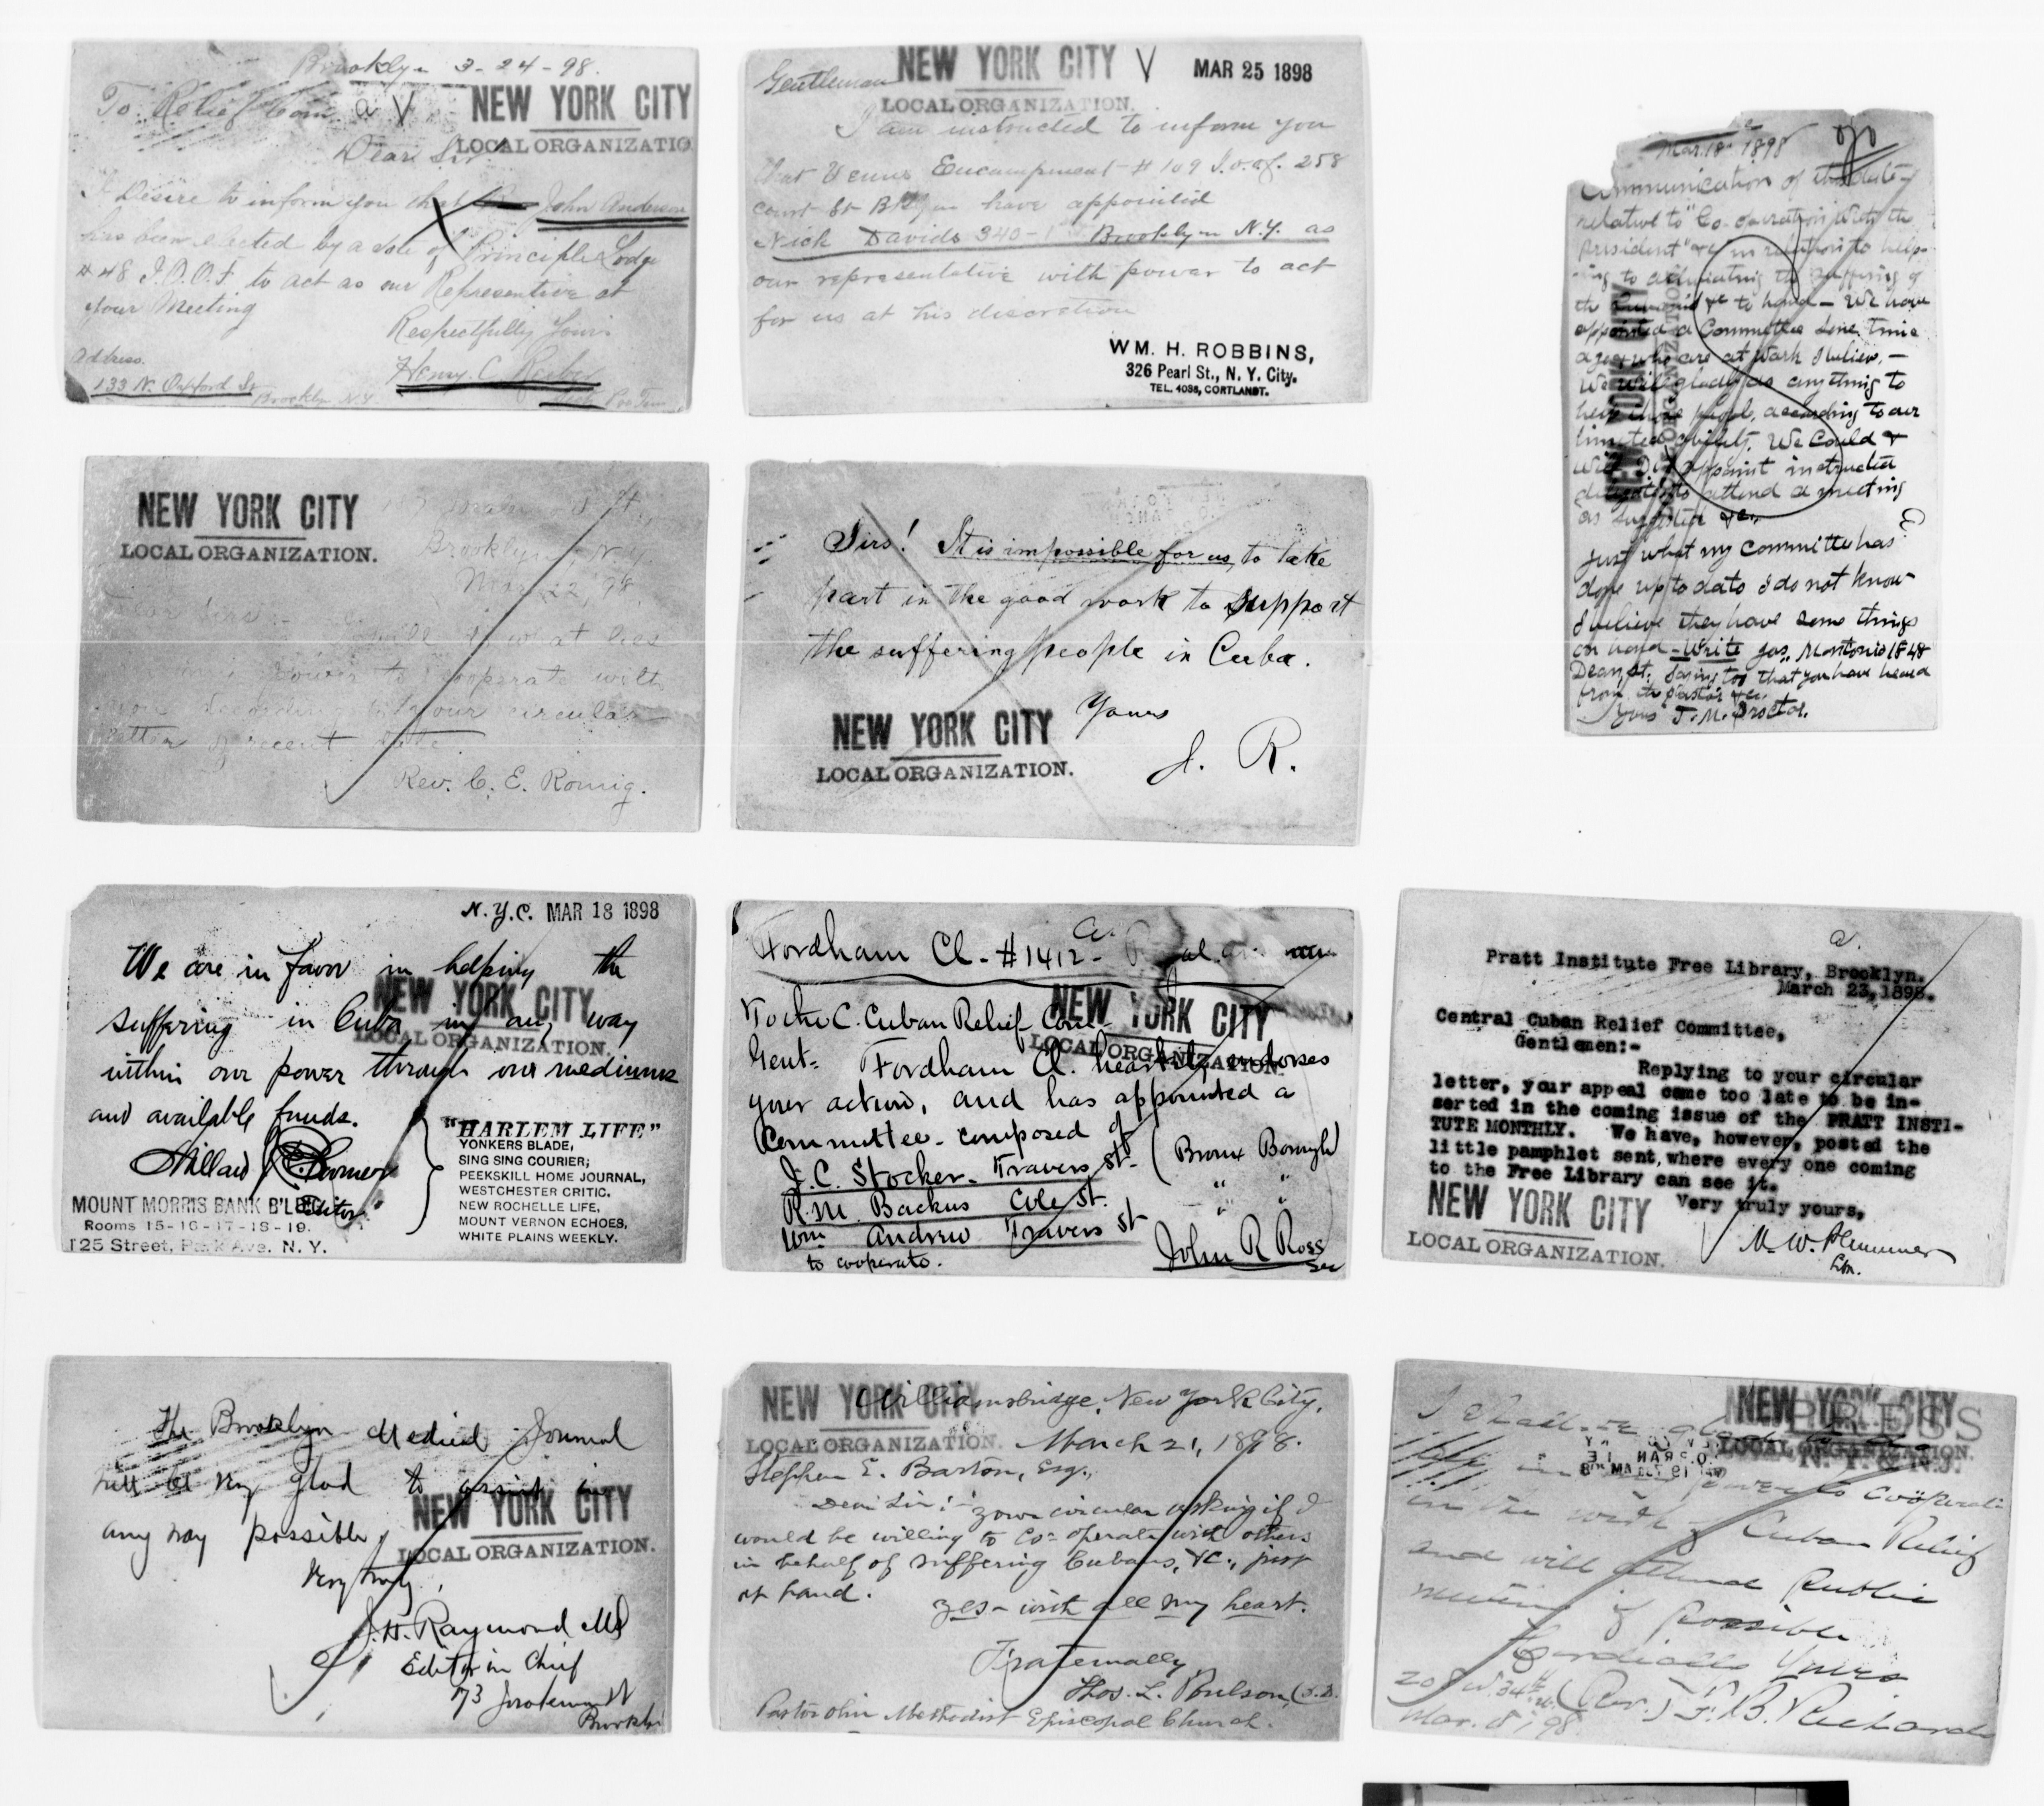 Brooklyn 3-24-98.
To Relief Com. a V
NEW YORK CITY
LOCAL ORGANIZATIO
Dear Sir
I Desire to inform you that John Anderson
has been elected by a vote of Principle Lodge
#48 I.O.O.F. to act as our Representive at
your Meeting
Respectfully Yours
Henry C.
Address.
133 N. Oxford St Brooklyn N.Y
NEW YORK CITY V MAR 25 1898
Gentlemen
LOCAL ORGANIZATION.
I am instructed to inform you
that Encampment # 109 I.O.O.F. 258
Court St Bklyn have appointed
Nick Davids 340-1 Brooklyn N.Y. as
our representative with power to act
for us at his discretion
WM. H. ROBBINS,
326 Pearl St., N. Y. City.
TEL. 4035, CORTLANDT.
Mar. 18 1898
Communication of
relative to "Co-operation with the
President" &c in relation to help-
ing to alleviating the suffering of
the &c to hand - We have
appointed a Committee some time
ago, who are at work I believe, -
We will gladly do anything to
help those people, according to our
limited ability. We Could &
will appoint instructed
delegates to attend a meeting
as suggested &c.
Just what my committee has
done up to date I do not know
I believe they have some things
on hand - Write Jas. 1848
Dean St. saying too that you have heard
from the pastor &c.
Yours T. M. Proctor.
NEW YORK CITY
LOCAL ORGANIZATION.
Brooklyn, N.Y.
Mar. 22, '98
Dear Sirs:-
I will do what lies
in my power to cooperate with
you according to your circular
letter of recent date.
Rev. C. E. Romig.
Sirs! It is impossible for us, to take
part in the good work to support
the suffering people in Cuba.
Yours
J. R.
NEW YORK CITY
LOCAL ORGANIZATION.
N.Y.C. MAR 18 1898
We are in favor in helping the
suffering in Cuba in any way
within our power through our mediums
and available funds.
NEW YORK CITY
LOCAL ORGANIZATION.
Editor
MOUNT MORRIS BANK B'LDG
Rooms 15-16-17-18-19.
125 Street, Park Ave. N. Y.
"HARLEM LIFE"
YONKERS BLADE,
SING SING COURIER;
PEEKSKILL HOME JOURNAL,
WESTCHESTER CRITIC,
NEW ROCHELLE LIFE,
MOUNT VERNON ECHOES,
WHITE PLAINS WEEKLY.
a.
Fordham Cl. #1412
NEW YORK CITY
LOCAL ORGANIZATION.
To the C. Cuban Relief Com.
Gent- Fordham Cl. heartily endorses
your action, and has appointed a
Committee - composed of
J. C. Stocker - Travers St. (Bronx Borough)
R. M. Backus Cole St. " "
Wm Andrew Travers St " "
to cooperate.
John R Ross
Sec
a.
Pratt Institute Free Library, Brooklyn.
March 23, 1898.
Central Cuban Relief Committee,
Gentlemen:-
Replying to your circular
letter, your appeal came too late to be in-
serted in the coming issue of the PRATT INSTI-
TUTE MONTHLY. We have, however, posted the
little pamphlet sent, where every one coming
to the Free Library can see it.
Very truly yours,
M. W. Plummer
Lbn.
NEW YORK CITY
LOCAL ORGANIZATION.
The Brooklyn Medical Journal
will be very glad to assist in
any way possible,
Very truly,
J. H. Raymond MD
Editor in Chief
73
Brooklyn
NEW YORK CITY
LOCAL ORGANIZATION.
NEW YORK CITY
LOCAL ORGANIZATION.
Williamsbridge, New York City,
March 21, 1898.
Stephen E. Barton, Esq.,
Dear Sir:- your circular asking if I
would be willing to Co-operate with others
in behalf of suffering Cubans, &c., just
at hand.
Yes - with all my heart.
Fraternally,
Thos. L. Poulson, (D.D.
Pastor Olin Methodist Episcopal Church.
NEW YORK CITY
PRESS
LOCAL ORGANIZATION.
N. Y. & N.J.
I shall be glad to do
all in my power to coöperate
in the work of Cuban Relief
and will attend Public
meeting if possible
Cordially Yours
208 W. 34th St. (Rev.) F. B. Richards
Mar. 8, 98